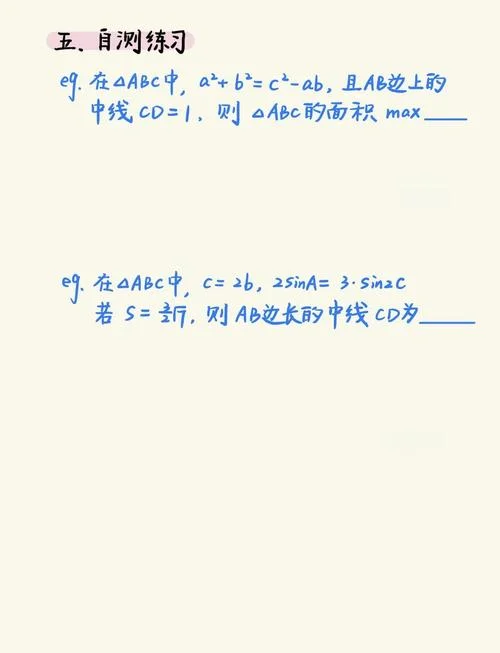 五、自测练习
eg. 在△ABC中, a²+b²=c²-ab, 且AB边上的
中线CD=1, 则△ABC的面积 max____
eg. 在△ABC中, c=2b, 2sinA=3·sin2C
若 S=, 则AB边长的中线CD为____